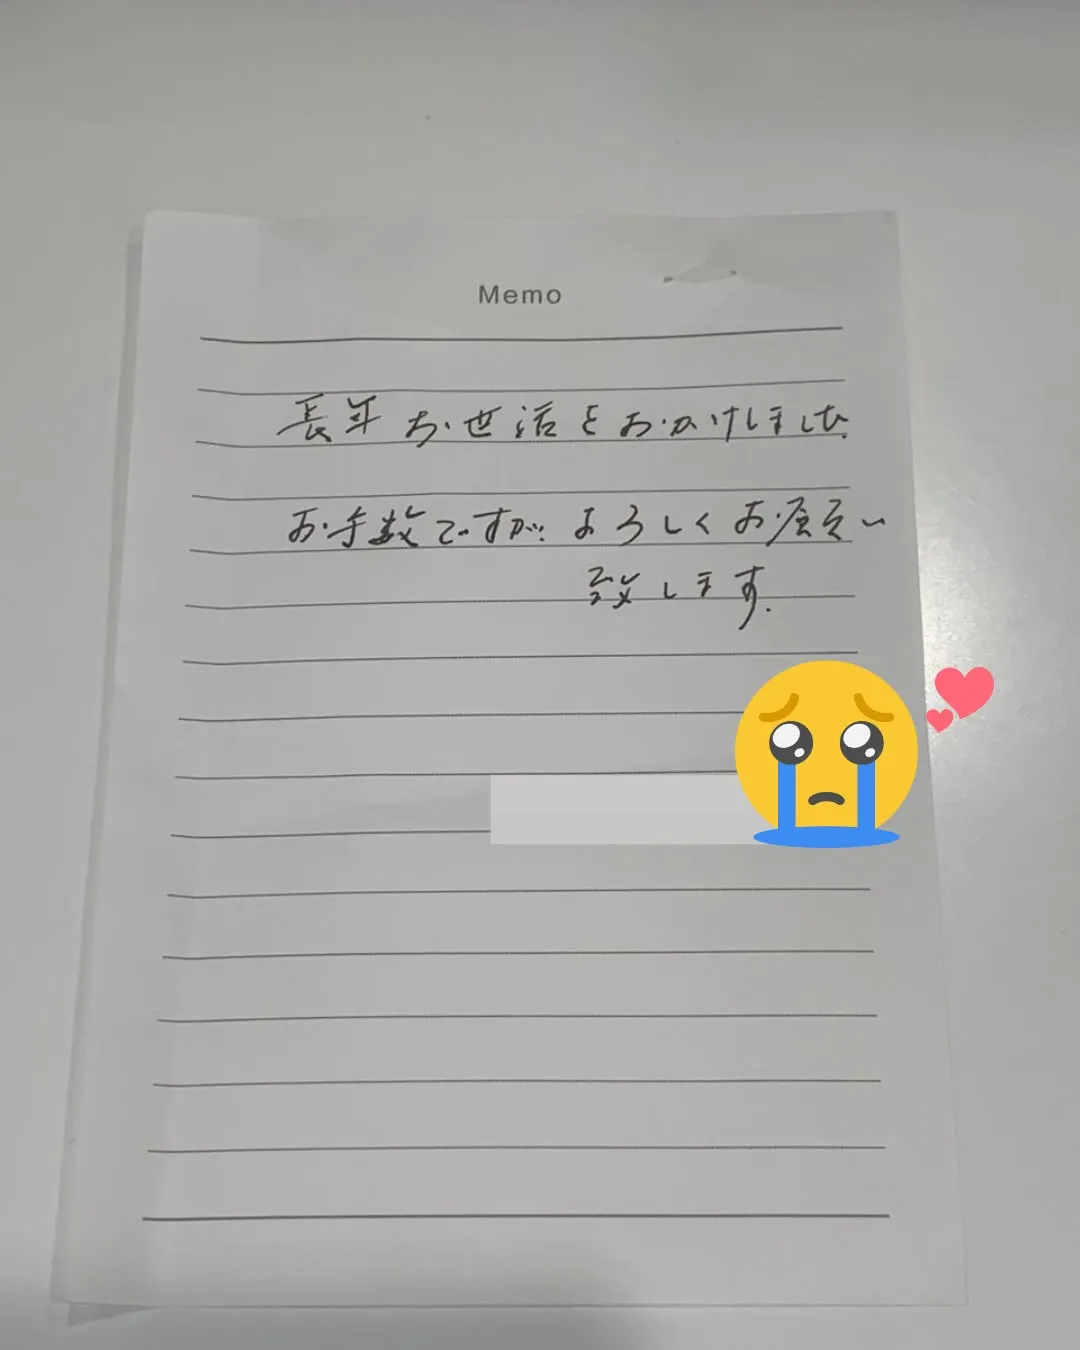 Memo
長年お世話をおかけしました.
お手数ですが、よろしくお願い
致します.